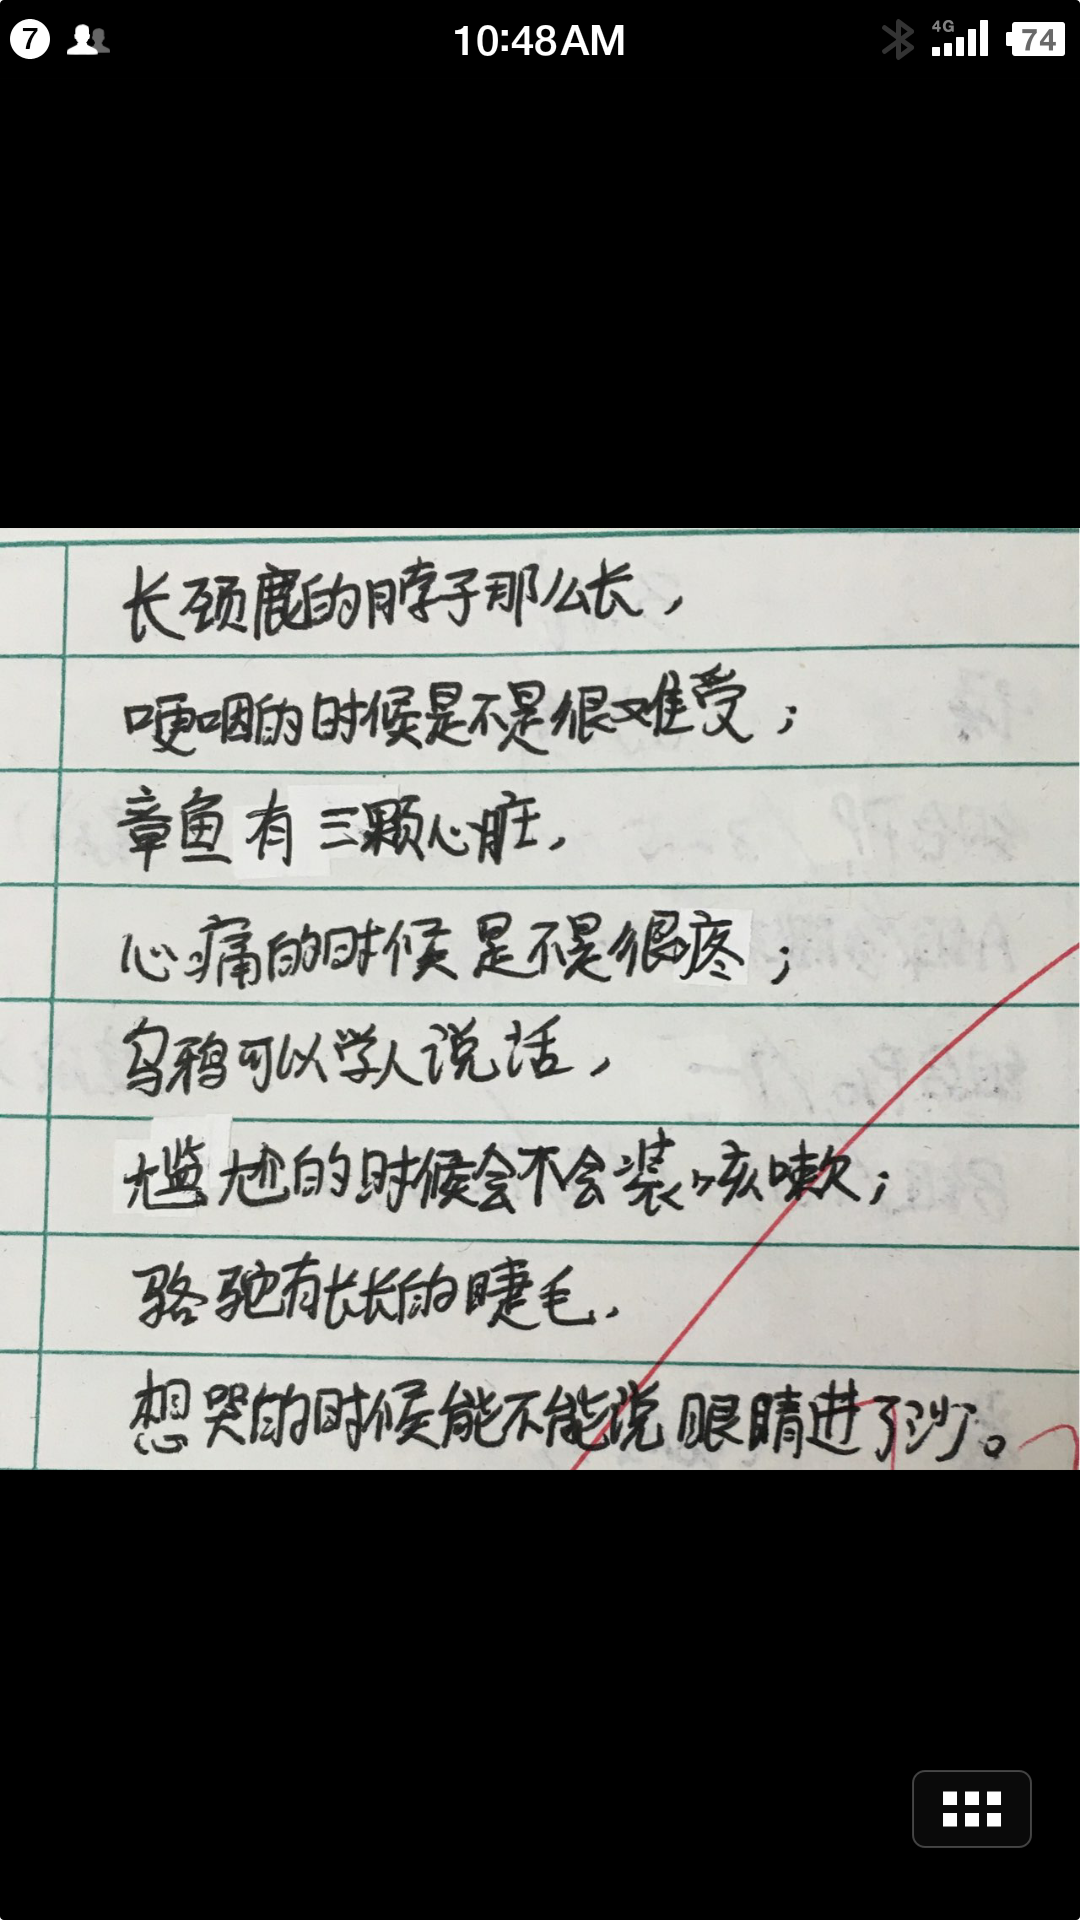 7
10:48AM
4G
74
长颈鹿的脖子那么长，
哽咽的时候是不是很难受；
章鱼有三颗心脏，
心痛的时候是不是很疼；
乌鸦可以学人说话，
尴尬的时候会不会装咳嗽；
骆驼有长长的睫毛，
想哭的时候能不能说眼睛进了沙。